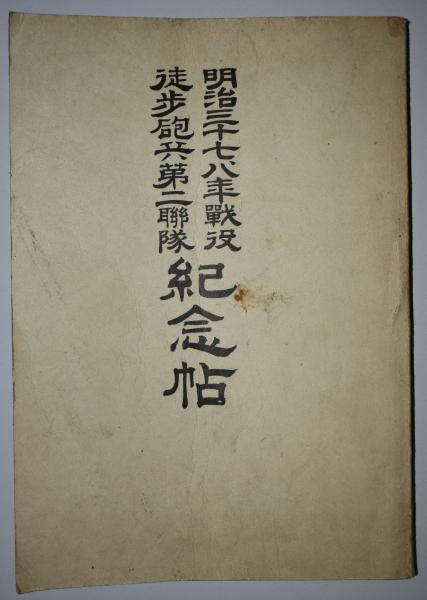 明治三十七八年戰役
徒步砲兵第二聯隊
紀念帖